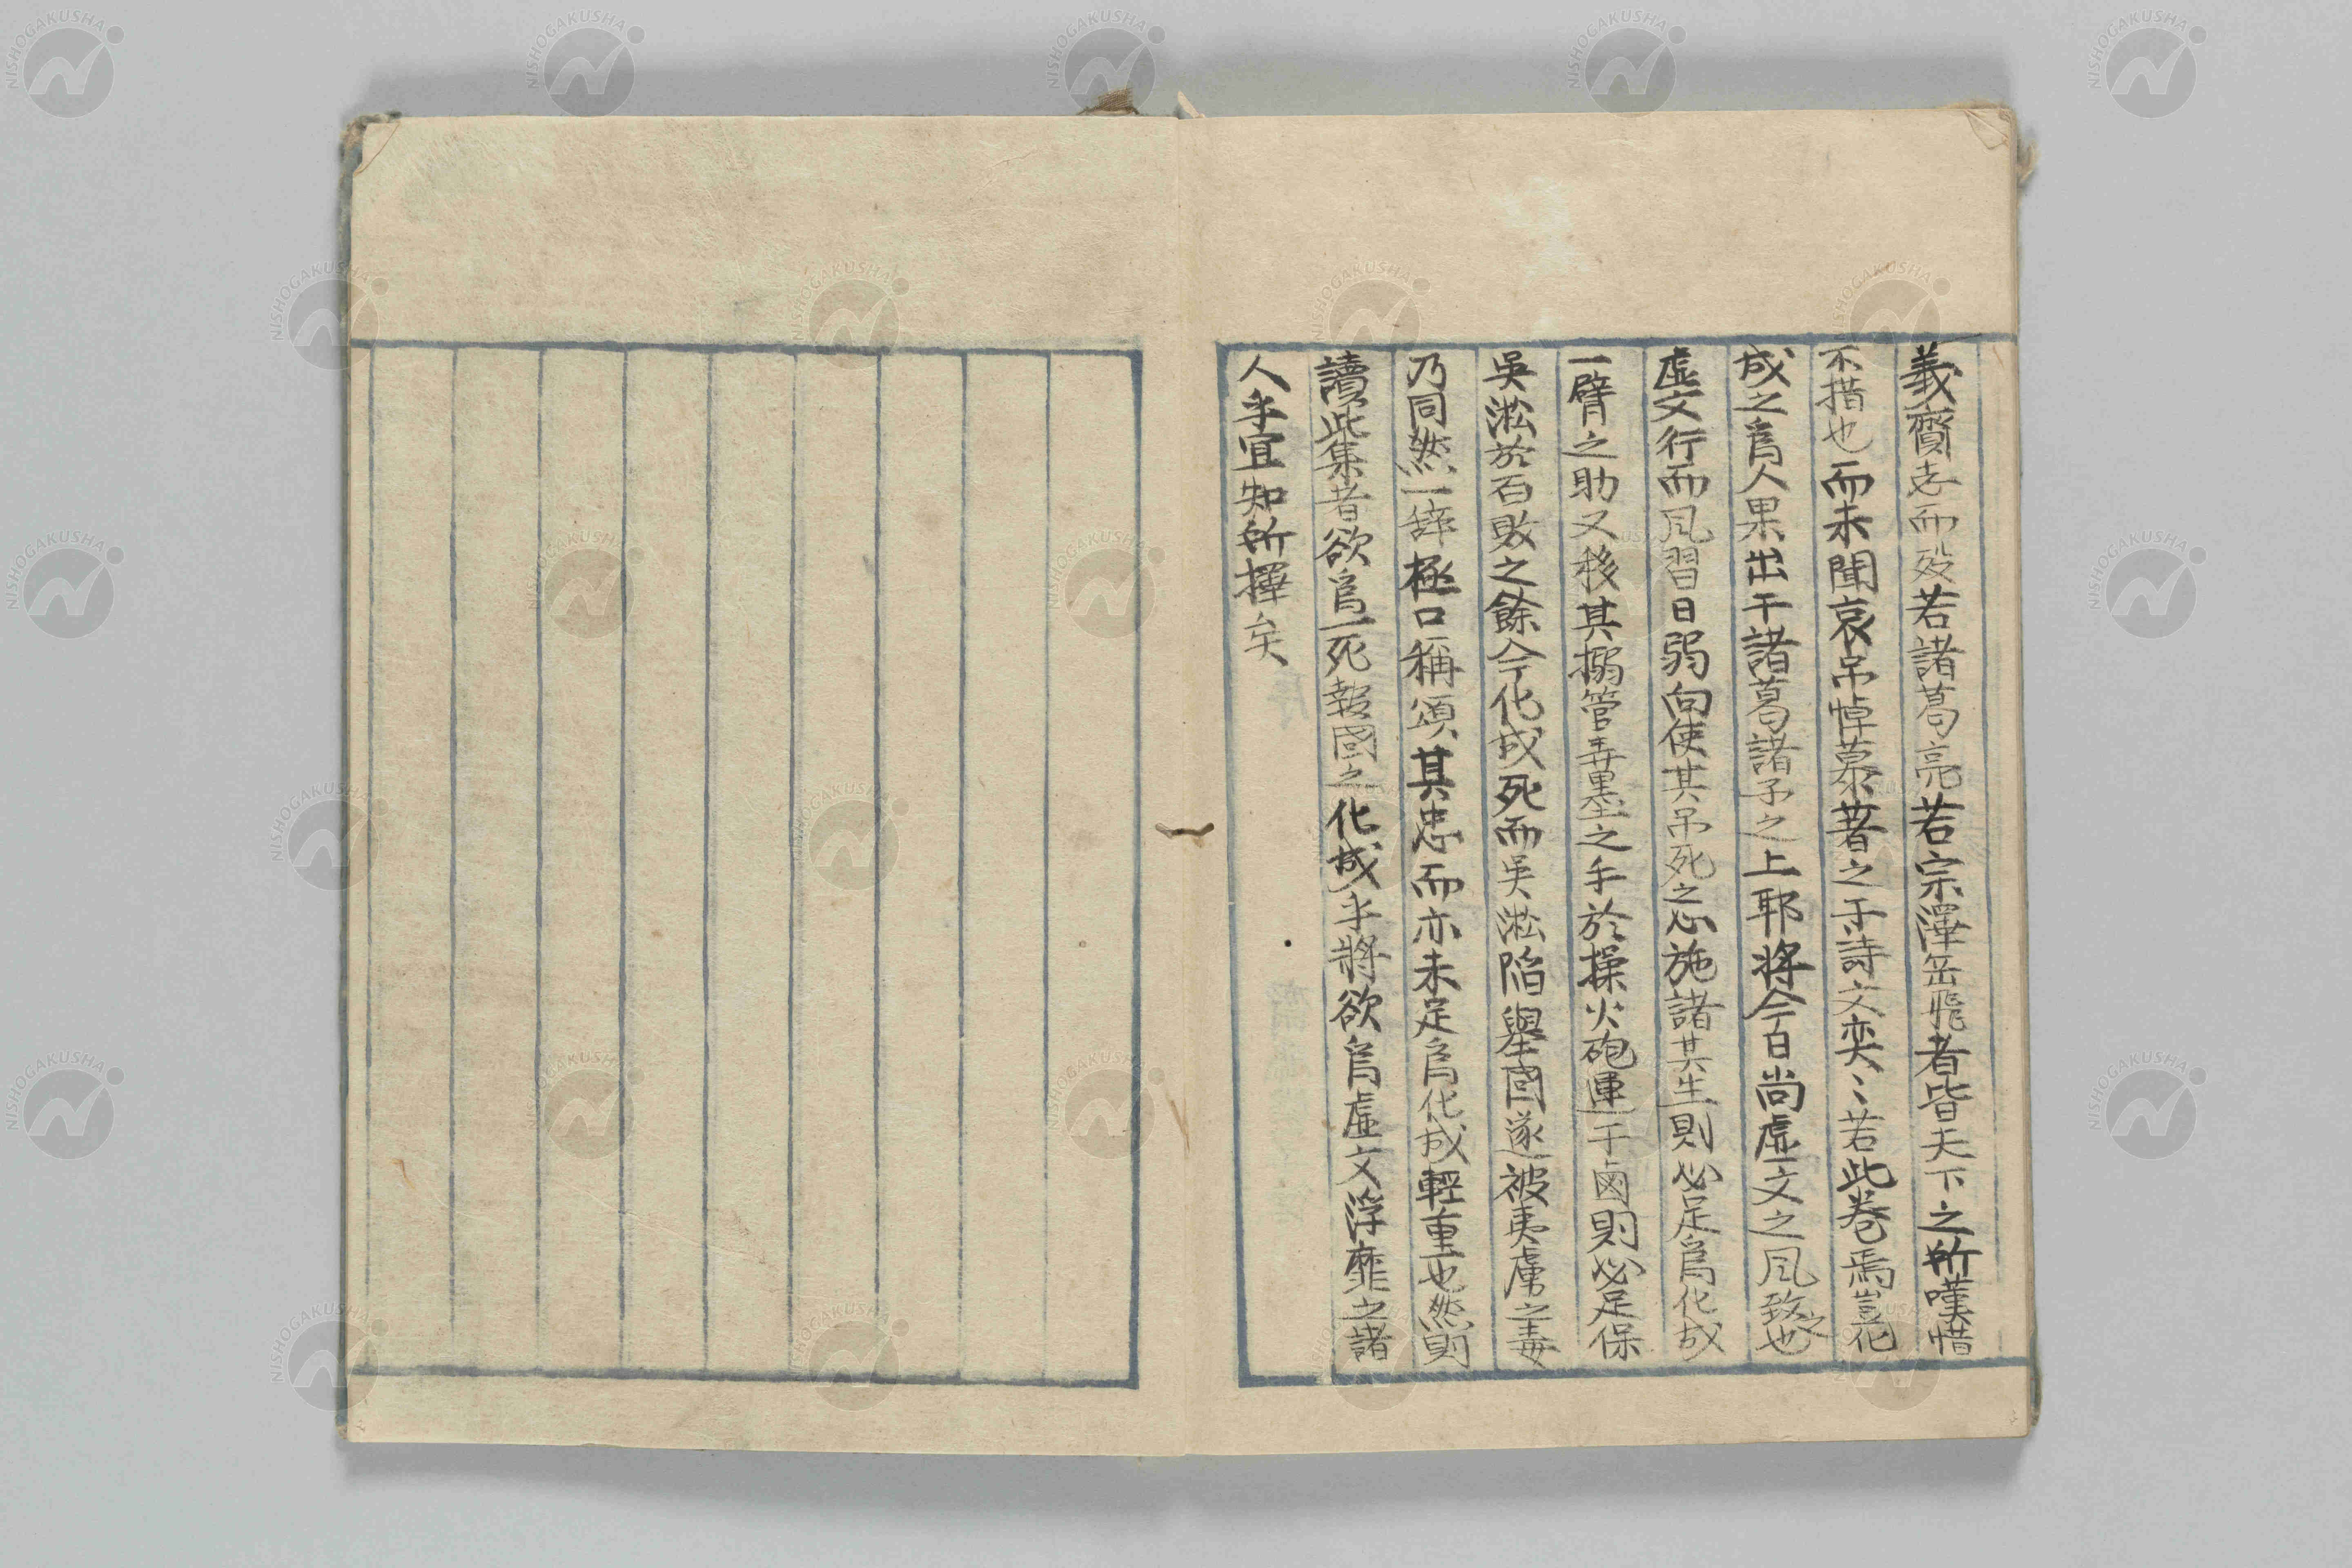 義齎志而歿若諸葛亮若宗澤岳飛者皆天下之所嘆惜
不措也而未聞哀吊悼慕著之于詩文奕〻若此卷焉豈化
成之爲人果出于諸葛諸子之上耶將今日尚虛文之風致之也
虛文行而風習日弱向使其吊死之心施諸其生則必足爲化成
一臂之助又移其搦管弄墨之手於操火砲運于鹵則必足保
吳淞於百敗之餘今化成死而吳淞陷舉國遂被夷虜之毒
乃同然一辭極口稱頌其忠而亦未足爲化成輕重也然則
讀此集者欲爲一死報國之化成乎將欲爲虛文浮靡之諸
人乎宜知所擇矣
NISHOGAKUSHA